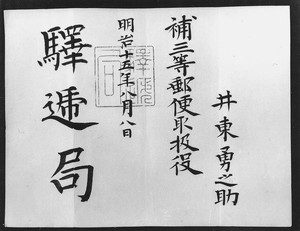 井東勇之助
補三等郵便取扱役
明治十五年八月八日
驛遞局